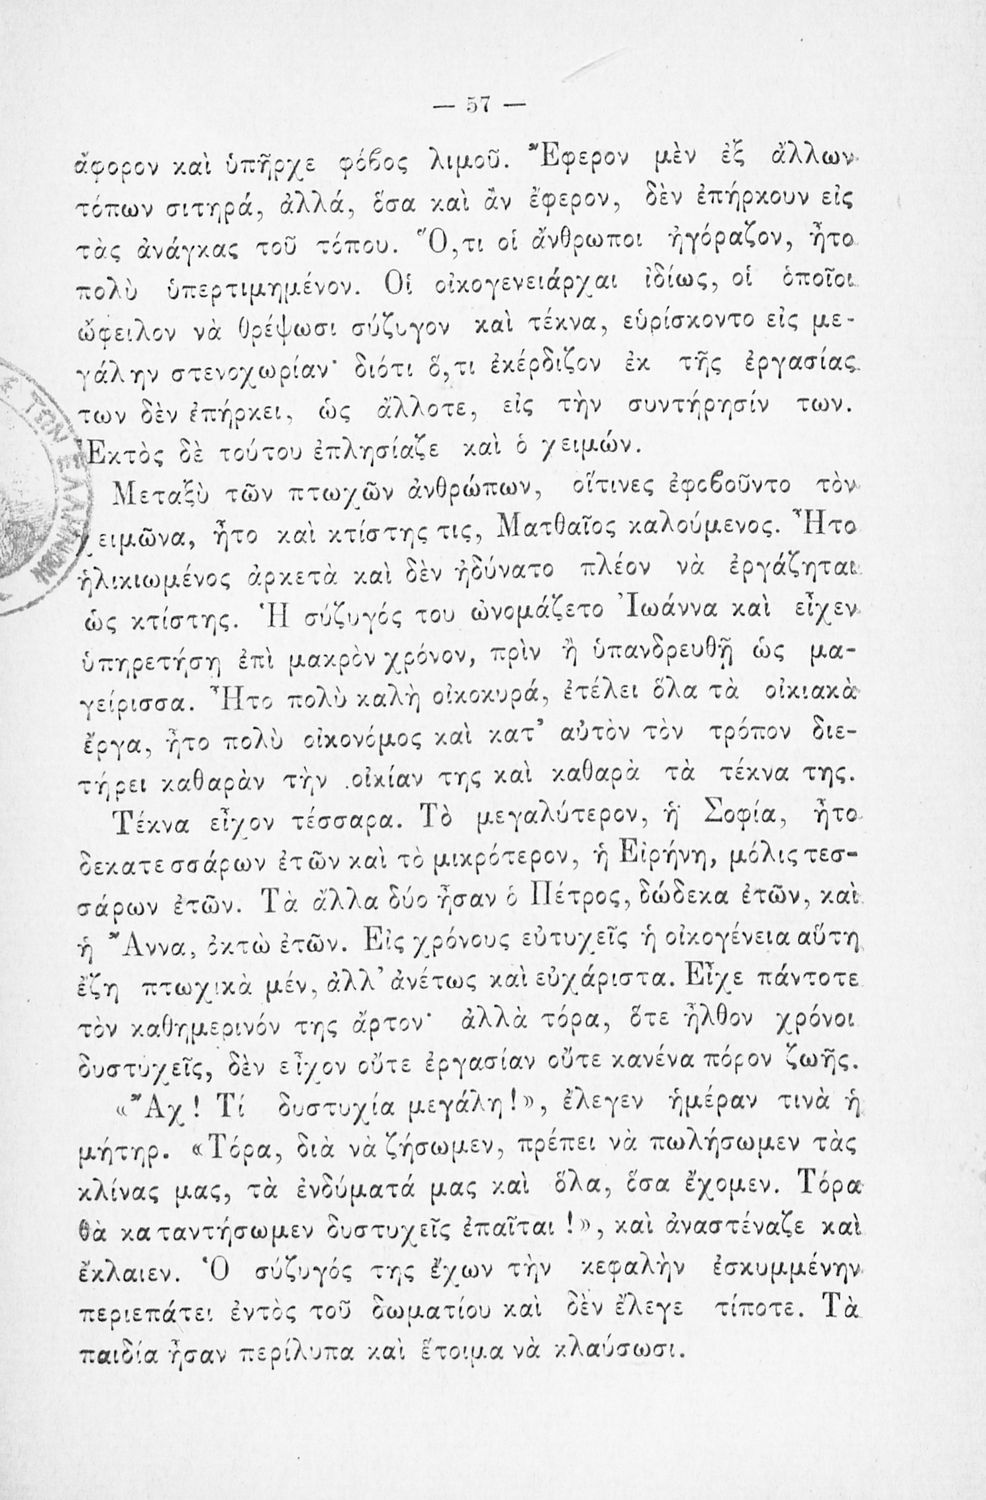 — 57 —
ἄφορον καὶ ὑπῆρχε φόβος λιμοῦ. Ἔφερον μὲν ἐξ ἄλλων
τόπων σιτηρά, ἀλλά, ὅσα καὶ ἂν ἔφερον, δὲν ἐπήρκουν εἰς
τὰς ἀνάγκας τοῦ τόπου. Ὅ,τι οἱ ἄνθρωποι ἠγόραζον, ἦτο
πολὺ ὑπερτιμημένον. Οἱ οἰκογενειάρχαι ἰδίως, οἱ ὁποῖοι
ὤφειλον νὰ θρέψωσι σύζυγον καὶ τέκνα, εὑρίσκοντο εἰς με-
γάλην στενοχωρίαν· διότι ὅ,τι ἐκέρδιζον ἐκ τῆς ἐργασίας
των δὲν ἐπήρκει, ὡς ἄλλοτε, εἰς τὴν συντήρησίν των.
Ἐκτὸς δὲ τούτου ἐπλησίαζε καὶ ὁ χειμών.
Μεταξὺ τῶν πτωχῶν ἀνθρώπων, οἵτινες ἐφοβοῦντο τὸν
χειμῶνα, ἦτο καὶ κτίστης τις, Ματθαῖος καλούμενος. Ἦτο
ἡλικιωμένος ἀρκετὰ καὶ δὲν ἠδύνατο πλέον νὰ ἐργάζηται
ὡς κτίστης. Ἡ σύζυγός του ὠνομάζετο Ἰωάννα καὶ εἶχεν
ὑπηρετήση ἐπὶ μακρὸν χρόνον, πρὶν ἢ ὑπανδρευθῇ ὡς μα-
γείρισσα. Ἦτο πολὺ καλὴ οἰκοκυρά, ἐτέλει ὅλα τὰ οἰκιακὰ
ἔργα, ἦτο πολὺ οἰκονόμος καὶ κατ' αὐτὸν τὸν τρόπον διε-
τήρει καθαρὰν τὴν οἰκίαν της καὶ καθαρὰ τὰ τέκνα της.
Τέκνα εἶχον τέσσαρα. Τὸ μεγαλύτερον, ἡ Σοφία, ἦτο
δεκατεσσάρων ἐτῶν καὶ τὸ μικρότερον, ἡ Εἰρήνη, μόλις τεσ-
σάρων ἐτῶν. Τὰ ἄλλα δύο ἦσαν ὁ Πέτρος, δώδεκα ἐτῶν, καὶ
ἡ Ἄννα, ὀκτὼ ἐτῶν. Εἰς χρόνους εὐτυχεῖς ἡ οἰκογένεια αὕτη
ἔζη πτωχικὰ μέν, ἀλλ' ἀνέτως καὶ εὐχάριστα. Εἶχε πάντοτε
τὸν καθημερινόν της ἄρτον· ἀλλὰ τόρα, ὅτε ἦλθον χρόνοι
δυστυχεῖς, δὲν εἶχον οὔτε ἐργασίαν οὔτε κανένα πόρον ζωῆς.
«Ἂχ! Τί δυστυχία μεγάλη!», ἔλεγεν ἡμέραν τινὰ ἡ
μήτηρ. «Τόρα, διὰ νὰ ζήσωμεν, πρέπει νὰ πωλήσωμεν τὰς
κλίνας μας, τὰ ἐνδύματά μας καὶ ὅλα, ὅσα ἔχομεν. Τόρα
θὰ καταντήσωμεν δυστυχεῖς ἐπαῖται!», καὶ ἀναστέναζε καὶ
ἔκλαιεν. Ὁ σύζυγός της ἔχων τὴν κεφαλὴν ἐσκυμμένην
περιεπάτει ἐντὸς τοῦ δωματίου καὶ δὲν ἔλεγε τίποτε. Τὰ
παιδία ἦσαν περίλυπα καὶ ἕτοιμα νὰ κλαύσωσι.
ΤΩΝ ΕΛΛΗΝΩΝ